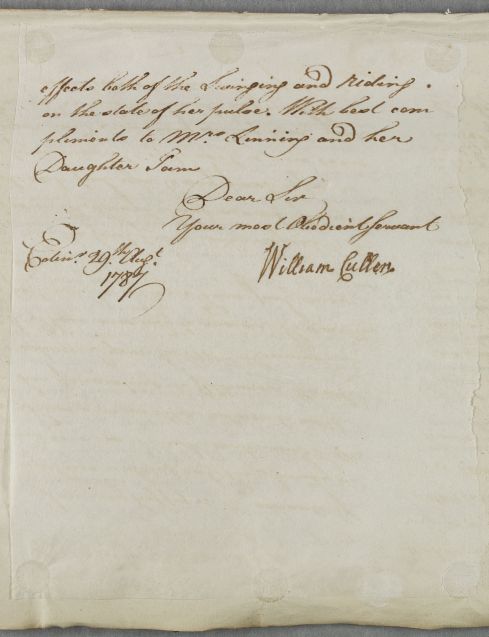 effects both of the Swinging and Riding
on the state of her pulse. With best com
pliments to Mrs Linning and her
Daughter I am
Dear Sir
Your most Obedient Servant
Edinr. 29th Augt.
1787
William Cullen